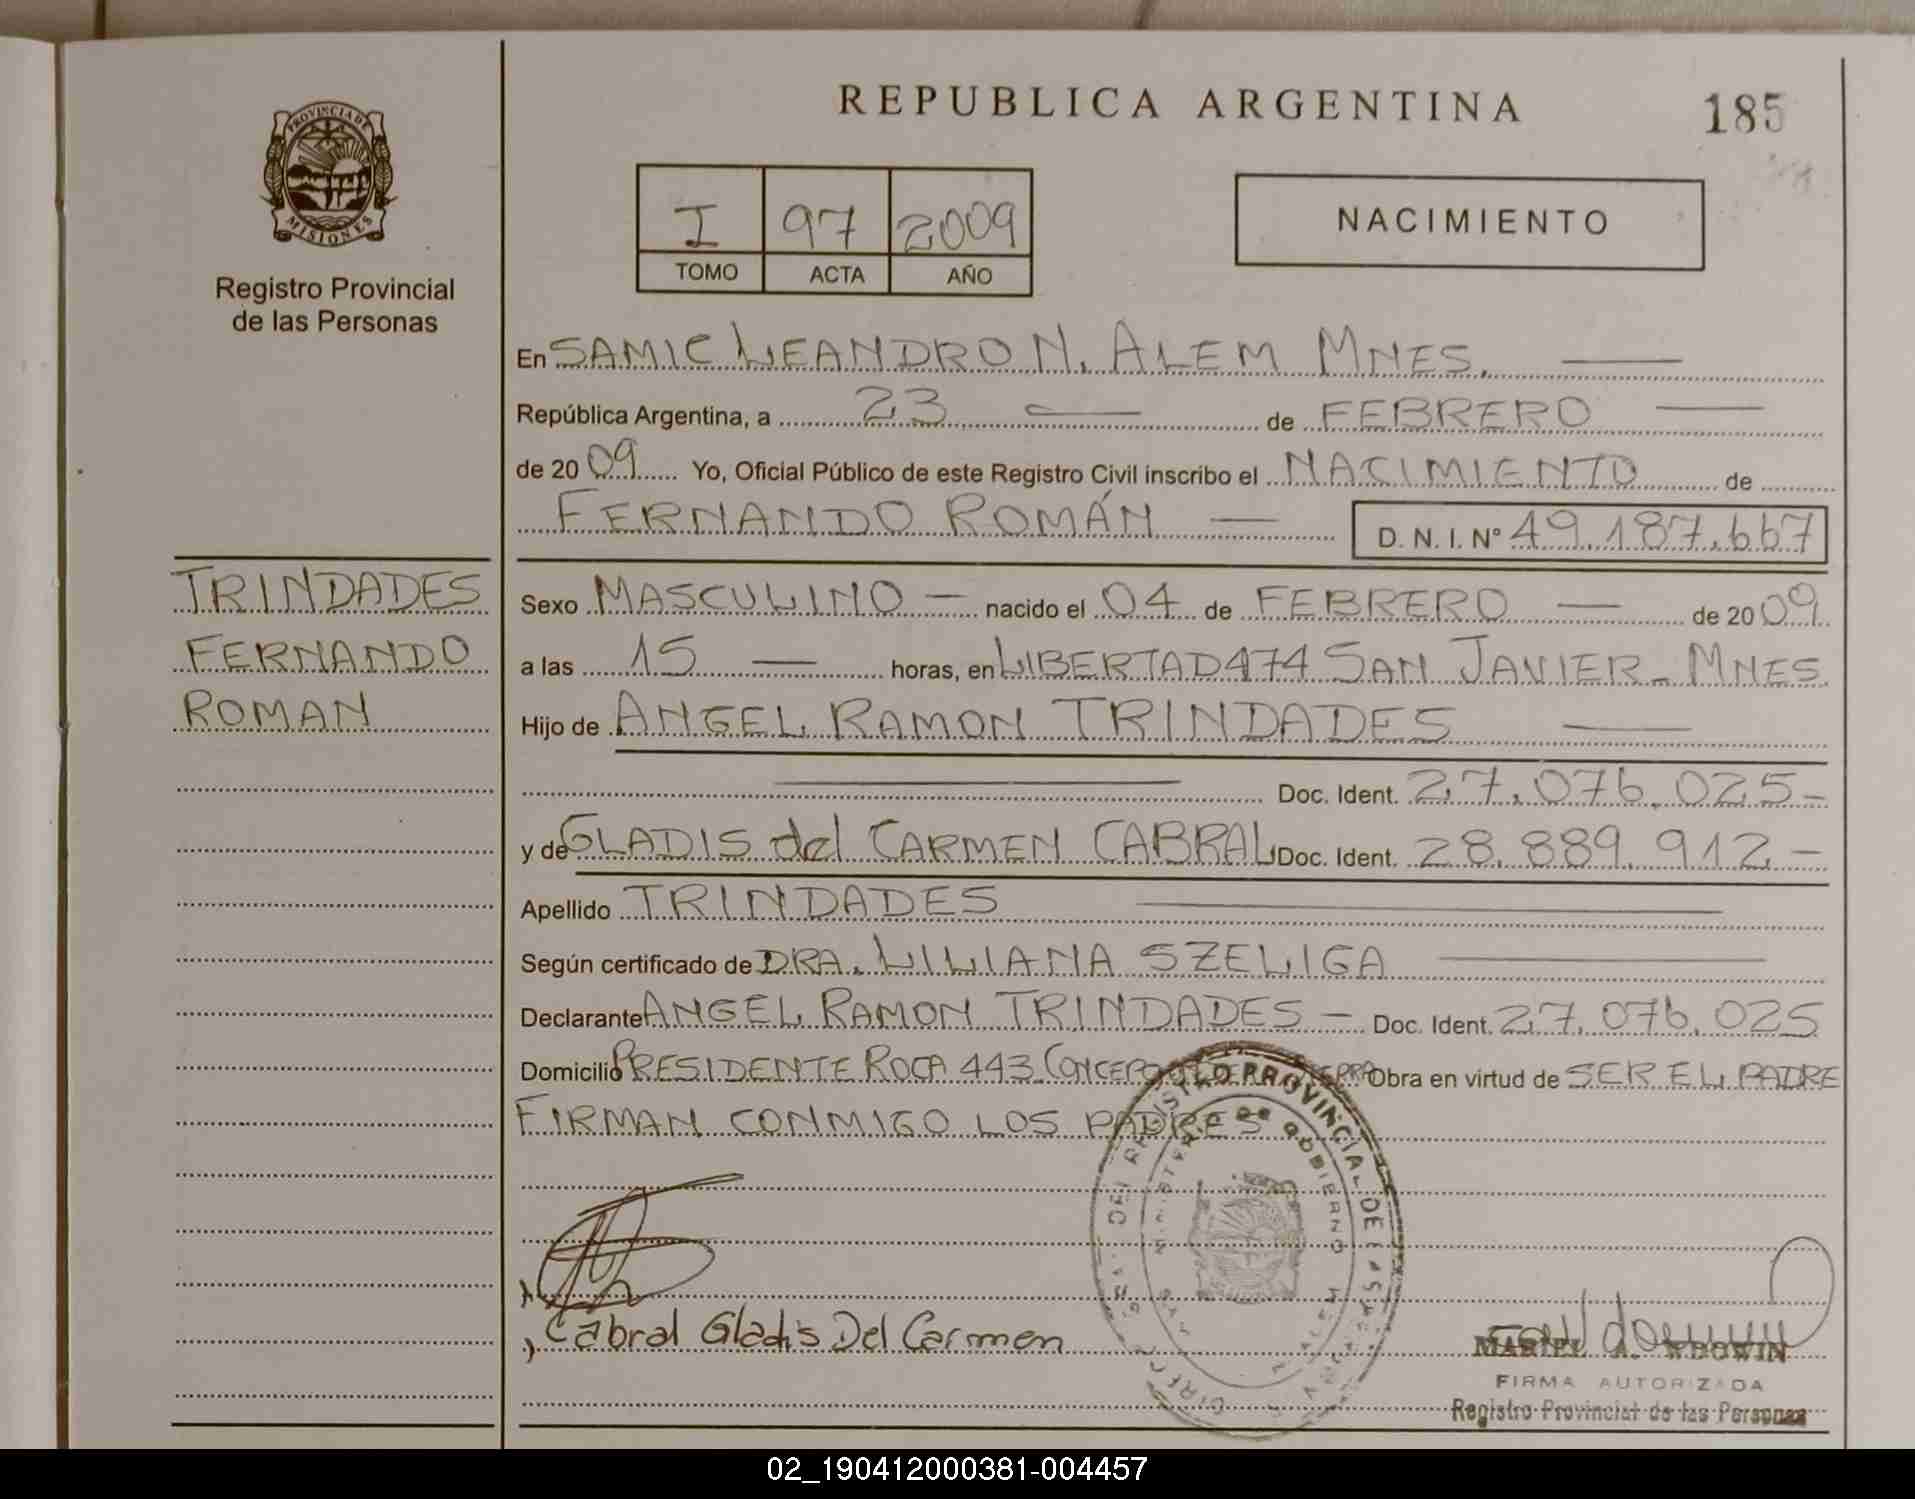 REPUBLICA ARGENTINA
185
PROVINCIA DE
MISIONES
Registro Provincial
de las Personas
I 97 2009
TOMO ACTA AÑO
NACIMIENTO
En SAMIC LEANDRO N. ALEM MNES.
República Argentina, a 23 de FEBRERO
de 2009 Yo, Oficial Público de este Registro Civil inscribo el NACIMIENTO de
FERNANDO ROMÁN D. N. I. N° 49.187.667
TRINDADES
FERNANDO
ROMAN
Sexo MASCULINO nacido el 04 de FEBRERO de 2009
a las 15 horas, en LIBERTAD 474 SAN JAVIER - MNES
Hijo de ANGEL RAMON TRINDADES
Doc. Ident. 27.076.025-
y de GLADIS del CARMEN CABRAL Doc. Ident. 28.889.912-
Apellido TRINDADES
Según certificado de DRA. LILIANA SZELIGA
Declarante ANGEL RAMON TRINDADES - Doc. Ident. 27.076.025
Domicilio PRESIDENTE ROCA 443 Obra en virtud de SER EL PADRE
FIRMAN CONMIGO LOS PADRES
Cabral Gladis Del Carmen
FIRMA AUTORIZADA
Registro Provincial de las Personas
02_190412000381-004457